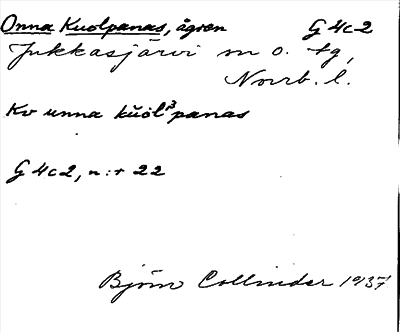 Onna Kuolpanas, ägren G 4c2
Jukkasjärvi sn o. tg,
Norrb. l.
Kv unna kŭolˀpanas
G 4c2, n:r 22
Björn Collinder 1937